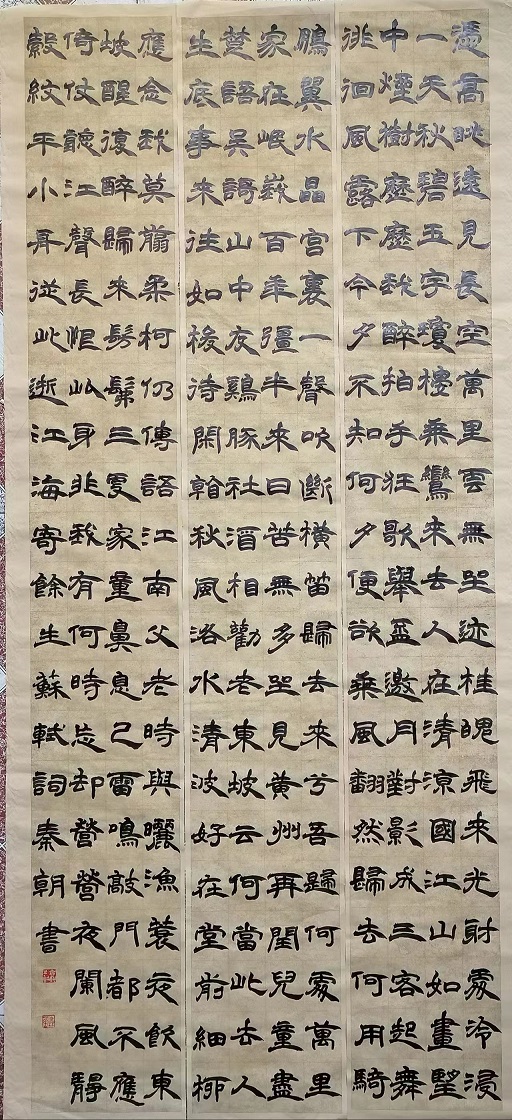 憑高眺遠見長空萬里雲無留迹桂魄飛來光射處冷浸
一天秋碧玉宇瓊樓乘鸞來去人在清涼國江山如畫望
中煙樹歷歷我醉拍手狂歌舉盃邀月對影成三客起舞
徘徊風露下今夕不知何夕便欲乘風翻然歸去何用騎
鵬翼水晶宮裏一聲吹斷橫笛歸去來兮吾歸何處萬里
家在岷峩百年彊半來日苦無多坐見黃州再閏兒童盡
楚語吳謌山中友鷄豚社酒相勸老東坡云何當此去人
生底事來往如梭待閑看秋風洛水清波好在堂前細柳
應念我莫翦柔柯仍傳語江南父老時與曬漁蓑夜飲東
坡醒復醉歸來髣髴三更家童鼻息已雷鳴敲門都不應
倚仗聽江聲長恨此身非我有何時忘却營營夜闌風靜
縠紋平小舟從此逝江海寄餘生蘇軾詞秦朝書